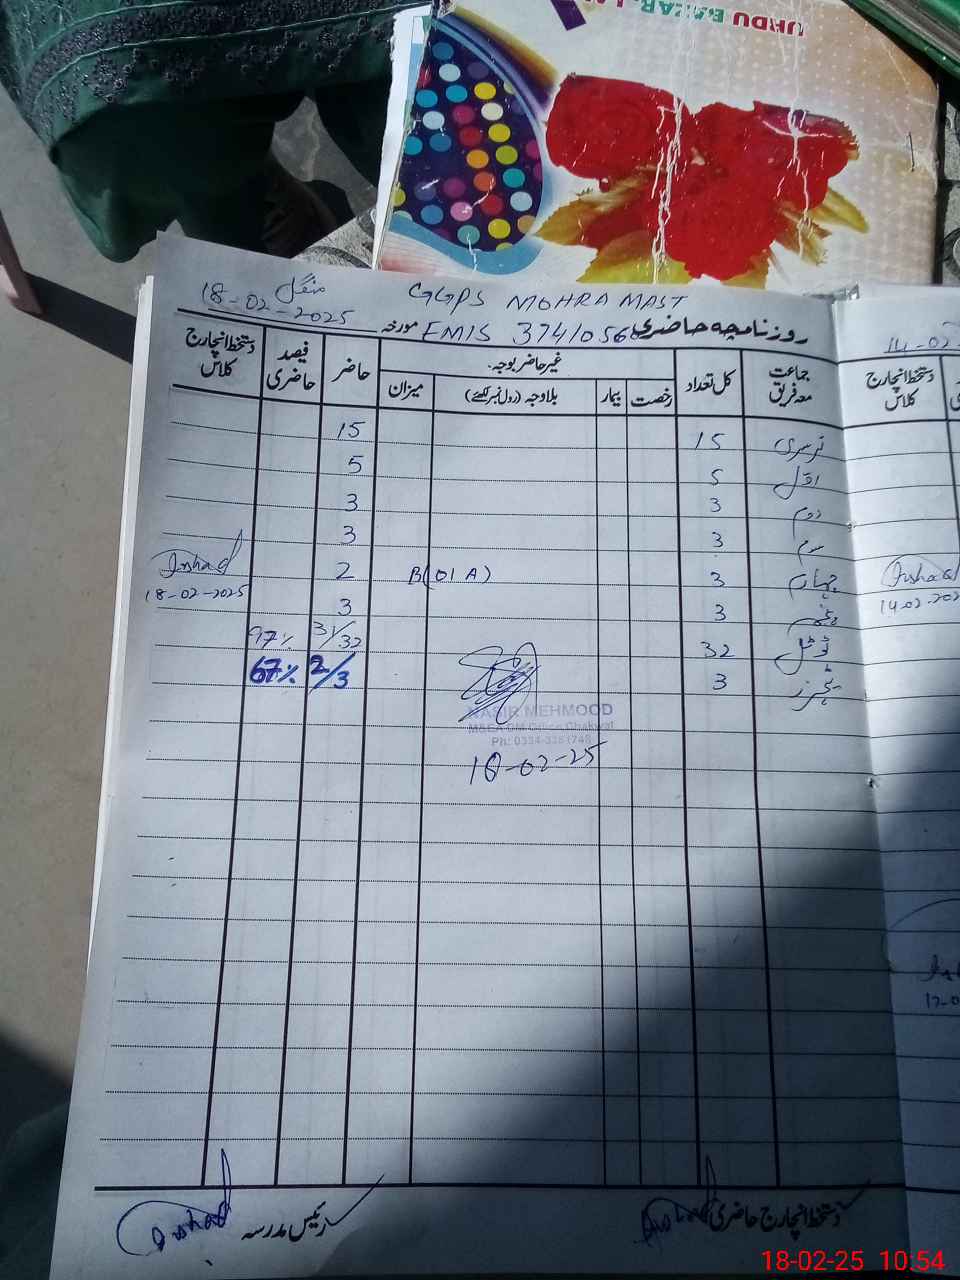 URDU BAZAR
GGPS MOHRA MAST
منگل
18-02-2025
روزنامچہ حاضری
EMIS 3741056
مورخہ
جماعت معہ فریق
کل تعداد
غیر حاضر بوجہ
رخصت
بیمار
بلاوجہ (رول نمبر لکھئے)
میزان
حاضر
فیصد حاضری
دستخط انچارج کلاس
نرسری 15 15
اول 5 5
دوم 3 3
سوم 3 3
چہارم 3 B(01 A) 2 Irshad
پنجم 3 3 18-02-2025
ٹوٹل 32 31/32 97%
ٹیچرز 3 2/3 67%
NASIR MEHMOOD
M&EA DM Office Chakwal
18-02-25
دستخط انچارج حاضری
Irshad
رئیس مدرسہ
Irshad
14-02-
دستخط انچارج کلاس
Irshad
14-02-202
18-02-25 10:54